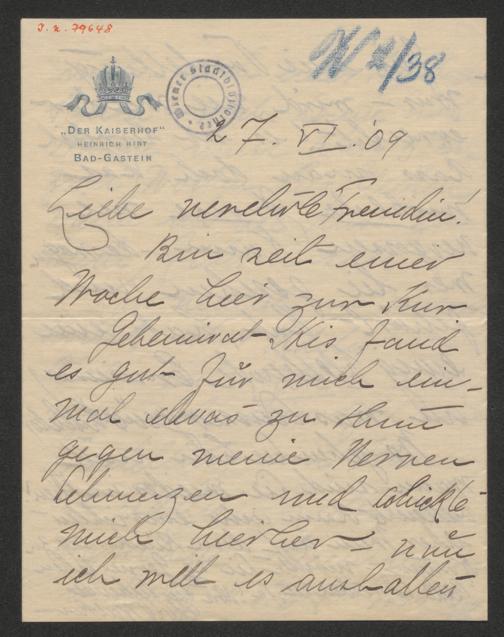 J. N. 79648
N 2/38
Wiener Stadtbibliothek
„DER KAISERHOF"
HEINRICH HIRT
BAD-GASTEIN
27. VI. 09
Liebe verehrte Freundin!
Bin seit einer
Woche hier zur Kur
Geheimrat Kis fand
es gut für mich ein-
mal etwas zu thun
gegen meine Nerven
schmerzen und schickte
mich hierher – nun
ich will es aushalten